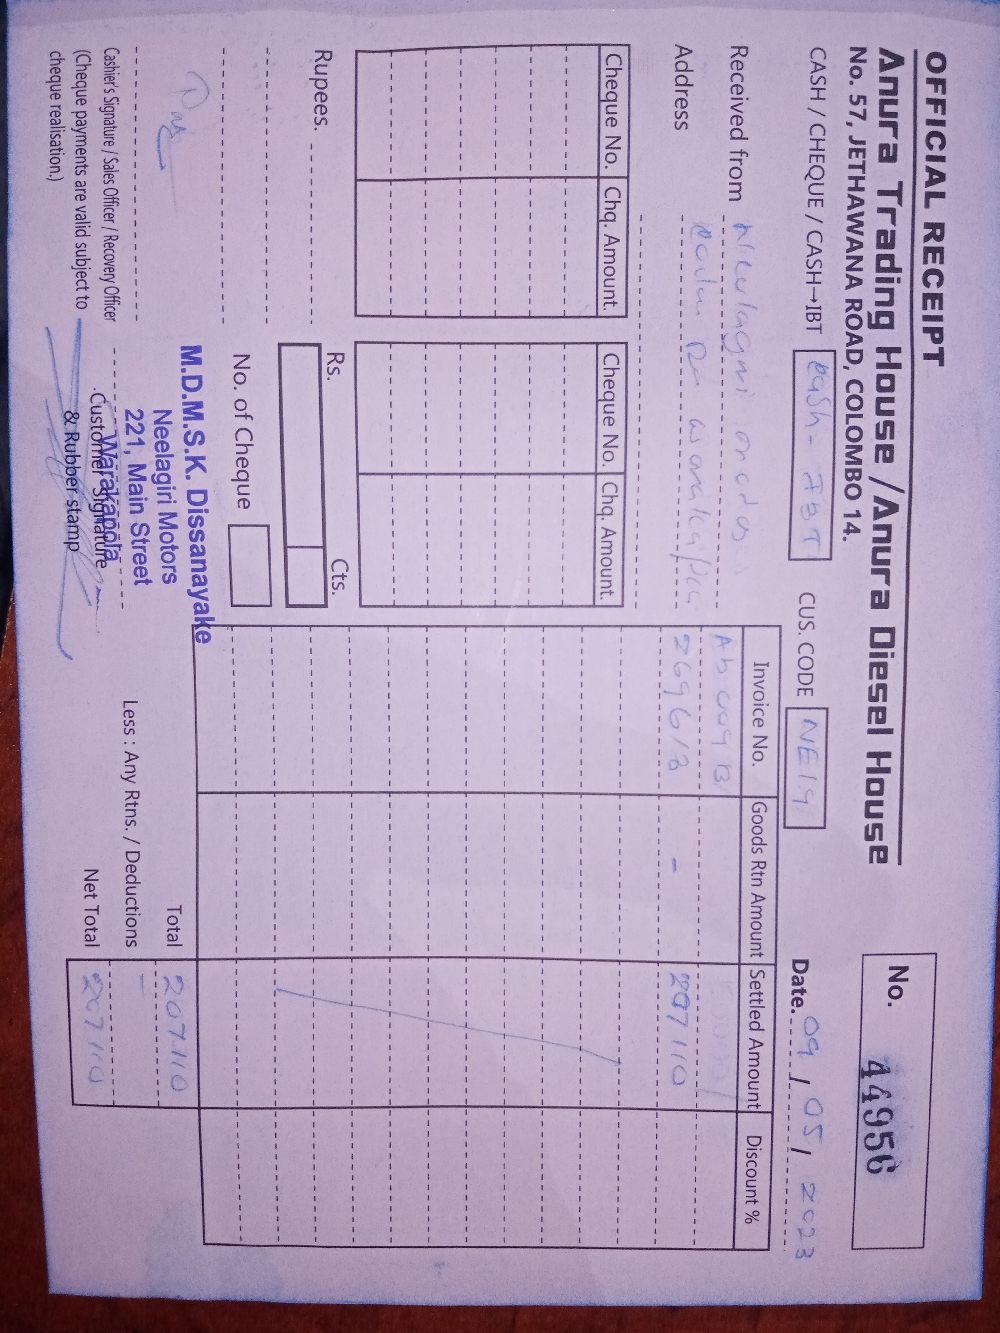 OFFICIAL RECEIPT
Anura Trading House / Anura Diesel House
No. 57, JETHAWANA ROAD, COLOMBO 14.
No. 44956
CASH / CHEQUE / CASH→IBT cash - IBT
CUS. CODE NE19
Date. 09 / 05 / 2023
Received from
Address
Cheque No. Chq. Amount. Cheque No. Chq. Amount.
Invoice No. Goods Rtn Amount Settled Amount Discount %
269618 - 207110
Rupees.
Rs. Cts.
No. of Cheque
Total 207110
Less : Any Rtns. / Deductions -
Net Total 207110
M.D.M.S.K. Dissanayake
Neelagiri Motors
221, Main Street
Warakapola
Cashier's Signature / Sales Officer / Recovery Officer
(Cheque payments are valid subject to
cheque realisation.)
Customer Signature
& Rubber stamp